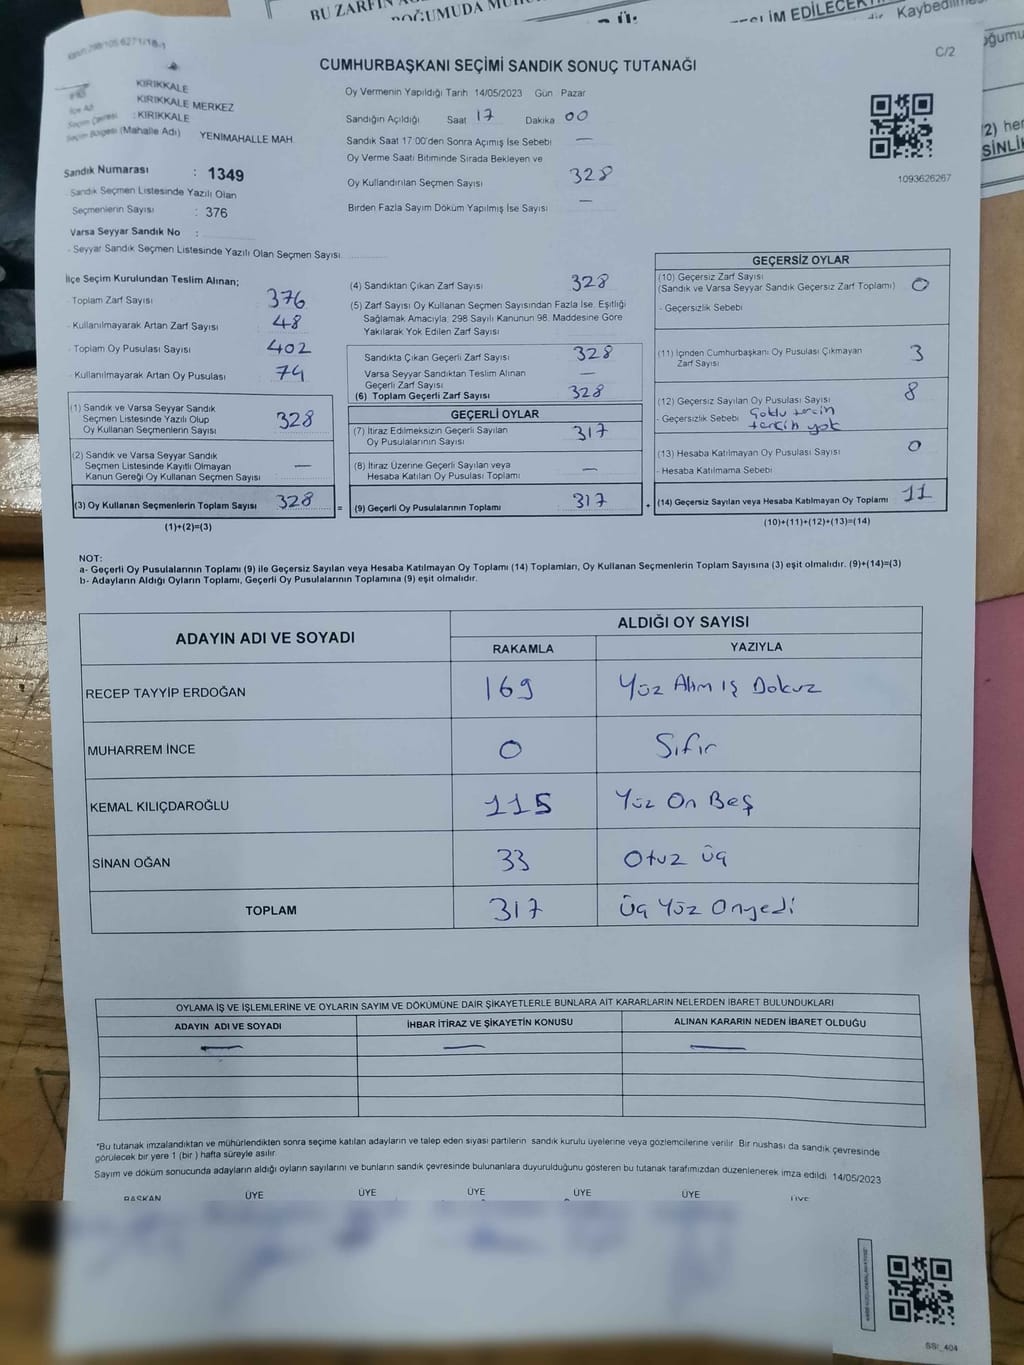 BU ZARFIN
DOĞUMUDA
LİM EDİLECEK
Kaybedilme
2) her
SİNLİK
C/2
CUMHURBAŞKANI SEÇİMİ SANDIK SONUÇ TUTANAĞI
KIRIKKALE
KIRIKKALE MERKEZ
: KIRIKKALE
Seçim Bölgesi (Mahalle Adı) YENİMAHALLE MAH.
Sandık Numarası : 1349
- Sandık Seçmen Listesinde Yazılı Olan
Seçmenlerin Sayısı : 376
Varsa Seyyar Sandık No :
- Seyyar Sandık Seçmen Listesinde Yazılı Olan Seçmen Sayısı
Oy Vermenin Yapıldığı Tarih 14/05/2023 Gün Pazar
Sandığın Açıldığı Saat 17 Dakika 00
Sandık Saat 17:00'den Sonra Açımış İse Sebebi —
Oy Verme Saati Bitiminde Sırada Bekleyen ve
Oy Kullandırılan Seçmen Sayısı 328
Birden Fazla Sayım Döküm Yapılmış İse Sayısı —
1093626267
İlçe Seçim Kurulundan Teslim Alınan;
- Toplam Zarf Sayısı 376
- Kullanılmayarak Artan Zarf Sayısı 48
- Toplam Oy Pusulası Sayısı 402
- Kullanılmayarak Artan Oy Pusulası 74
(1) Sandık ve Varsa Seyyar Sandık
Seçmen Listesinde Yazılı Olup
Oy Kullanan Seçmenlerin Sayısı 328
(2) Sandık ve Varsa Seyyar Sandık
Seçmen Listesinde Kayıtlı Olmayan
Kanun Gereği Oy Kullanan Seçmen Sayısı —
(3) Oy Kullanan Seçmenlerin Toplam Sayısı 328 =
(1)+(2)=(3)
(4) Sandıktan Çıkan Zarf Sayısı 328
(5) Zarf Sayısı Oy Kullanan Seçmen Sayısından Fazla İse, Eşitliği
Sağlamak Amacıyla, 298 Sayılı Kanunun 98. Maddesine Göre
Yakılarak Yok Edilen Zarf Sayısı
Sandıkta Çıkan Geçerli Zarf Sayısı 328
Varsa Seyyar Sandıktan Teslim Alınan
Geçerli Zarf Sayısı —
(6) Toplam Geçerli Zarf Sayısı 328
GEÇERLİ OYLAR
(7) İtiraz Edilmeksizin Geçerli Sayılan
Oy Pusulalarının Sayısı 317
(8) İtiraz Üzerine Geçerli Sayılan veya
Hesaba Katılan Oy Pusulası Toplamı —
(9) Geçerli Oy Pusulalarının Toplamı 317 +
GEÇERSİZ OYLAR
(10) Geçersiz Zarf Sayısı
(Sandık ve Varsa Seyyar Sandık Geçersiz Zarf Toplamı) 0
- Geçersizlik Sebebi
(11) İçinden Cumhurbaşkanı Oy Pusulası Çıkmayan
Zarf Sayısı 3
(12) Geçersiz Sayılan Oy Pusulası Sayısı 8
- Geçersizlik Sebebi Çoklu tercih
tercih yok
(13) Hesaba Katılmayan Oy Pusulası Sayısı 0
- Hesaba Katılmama Sebebi
(14) Geçersiz Sayılan veya Hesaba Katılmayan Oy Toplamı 11
(10)+(11)+(12)+(13)=(14)
NOT:
a- Geçerli Oy Pusulalarının Toplamı (9) ile Geçersiz Sayılan veya Hesaba Katılmayan Oy Toplamı (14) Toplamları, Oy Kullanan Seçmenlerin Toplam Sayısına (3) eşit olmalıdır. (9)+(14)=(3)
b- Adayların Aldığı Oyların Toplamı, Geçerli Oy Pusulalarının Toplamına (9) eşit olmalıdır.
ADAYIN ADI VE SOYADI ALDIĞI OY SAYISI
RAKAMLA YAZIYLA
RECEP TAYYİP ERDOĞAN 169 Yüz Altmış Dokuz
MUHARREM İNCE 0 Sıfır
KEMAL KILIÇDAROĞLU 115 Yüz On Beş
SİNAN OĞAN 33 Otuz Üç
TOPLAM 317 Üç Yüz Onyedi
OYLAMA İŞ VE İŞLEMLERİNE VE OYLARIN SAYIM VE DÖKÜMÜNE DAİR ŞİKAYETLERLE BUNLARA AİT KARARLARIN NELERDEN İBARET BULUNDUKLARI
ADAYIN ADI VE SOYADI İHBAR İTİRAZ VE ŞİKAYETİN KONUSU ALINAN KARARIN NEDEN İBARET OLDUĞU
— — —
*Bu tutanak imzalandıktan ve mühürlendikten sonra seçime katılan adayların ve talep eden siyasi partilerin sandık kurulu üyelerine veya gözlemcilerine verilir. Bir nüshası da sandık çevresinde
görülecek bir yere 1 (bir) hafta süreyle asılır.
Sayım ve döküm sonucunda adayların aldığı oyların sayılarını ve bunların sandık çevresinde bulunanlara duyurulduğunu gösteren bu tutanak tarafımızdan düzenlenerek imza edildi. 14/05/2023
BAŞKAN ÜYE ÜYE ÜYE ÜYE ÜYE ÜYE
SSI_404